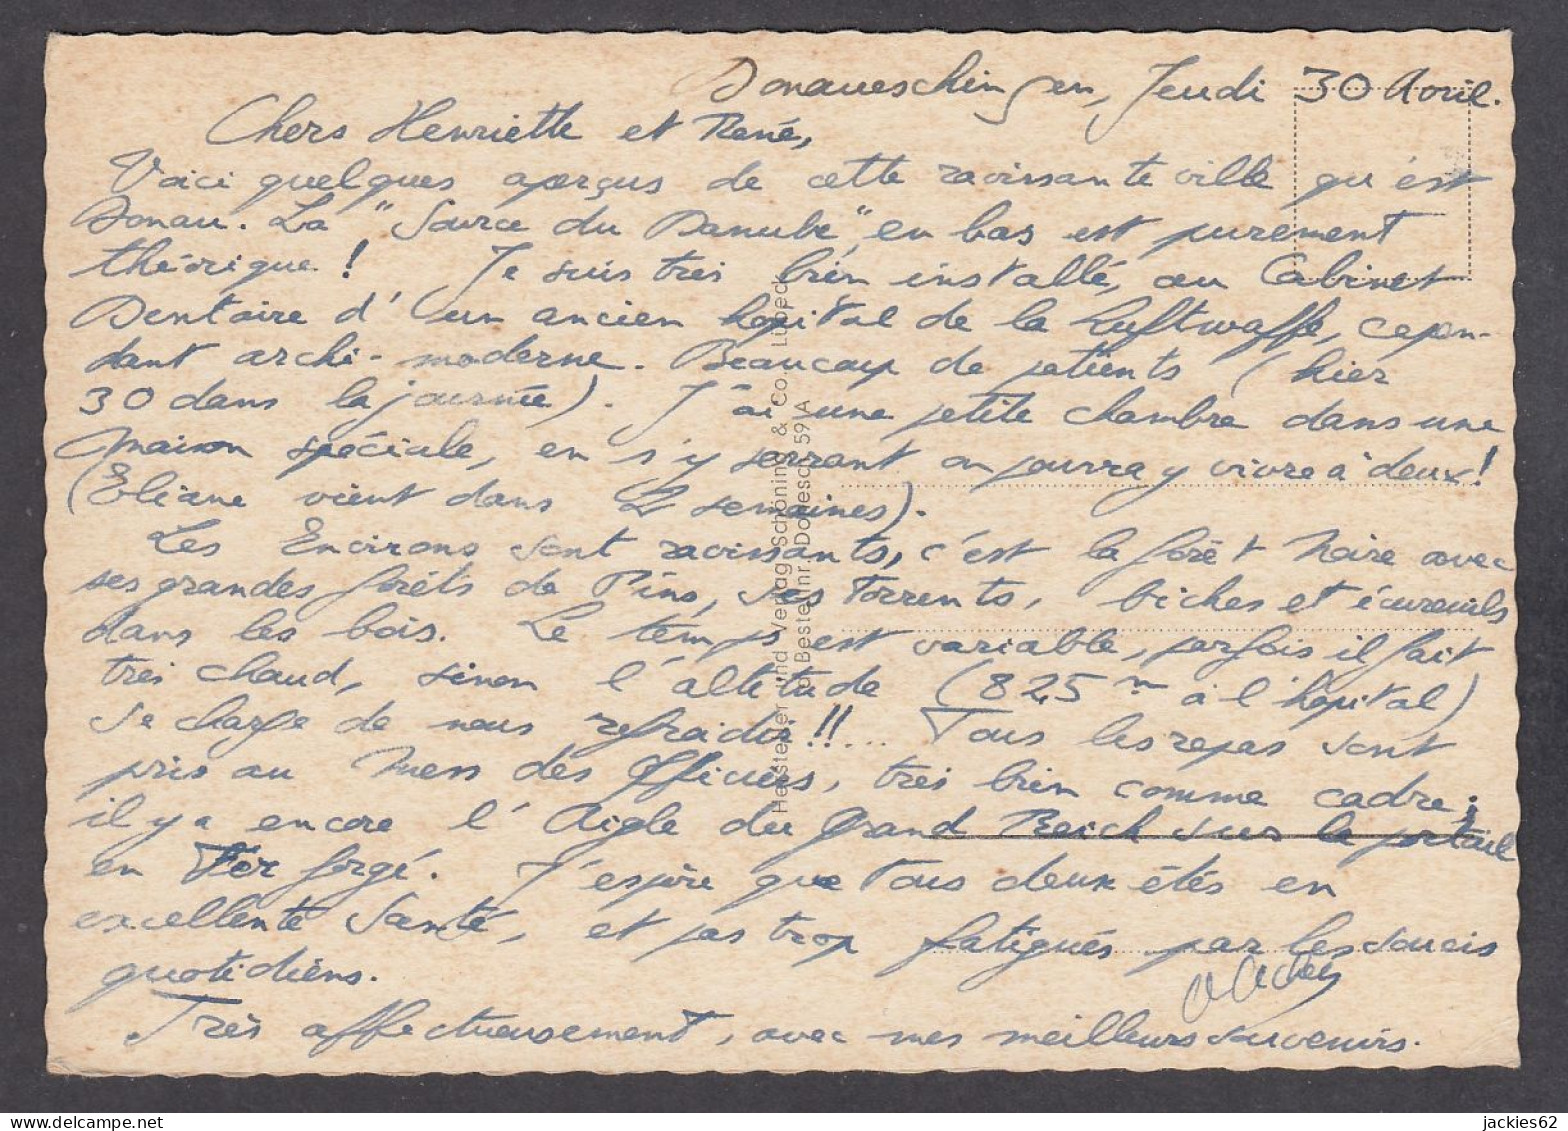 Donaueschingen, Jeudi 30 Avril.
Chers Henriette et René,
Voici quelques aperçus de cette ravissante ville qu'est
Donau. La "Source du Danube", en bas est purement
théorique! Je suis très bien installé, au Cabinet
Dentaire d'un ancien hôpital de la Luftwaffe, cepen-
dant archi-moderne. Beaucoup de patients (hier
30 dans la journée). J'ai une petite chambre dans une
maison spéciale, en s'y serrant on pourra y vivre à deux!
(Eliane vient dans 2 semaines).
Les Environs sont ravissants, c'est la forêt Noire avec
ses grandes forêts de Pins, ses Torrents, biches et écureuils
dans les bois. Le temps est variable, parfois il fait
très chaud, sinon l'altitude (825 m à l'hôpital)
se charge de nous refroidir!!... Tous les repas sont
pris au Mess des Officiers, très bien comme cadre;
il y a encore l'Aigle du Grand Reich sur le portail
en Fer forgé. J'espère que tous deux êtes en
excellente santé, et pas trop fatigués par les soucis
quotidiens.
Très affectueusement, avec mes meilleurs souvenirs.
Hersteller und Verlag Schöning & Co., Lübeck
Bestellnr. Donesch 59 A
www.delcampe.net
jackies62